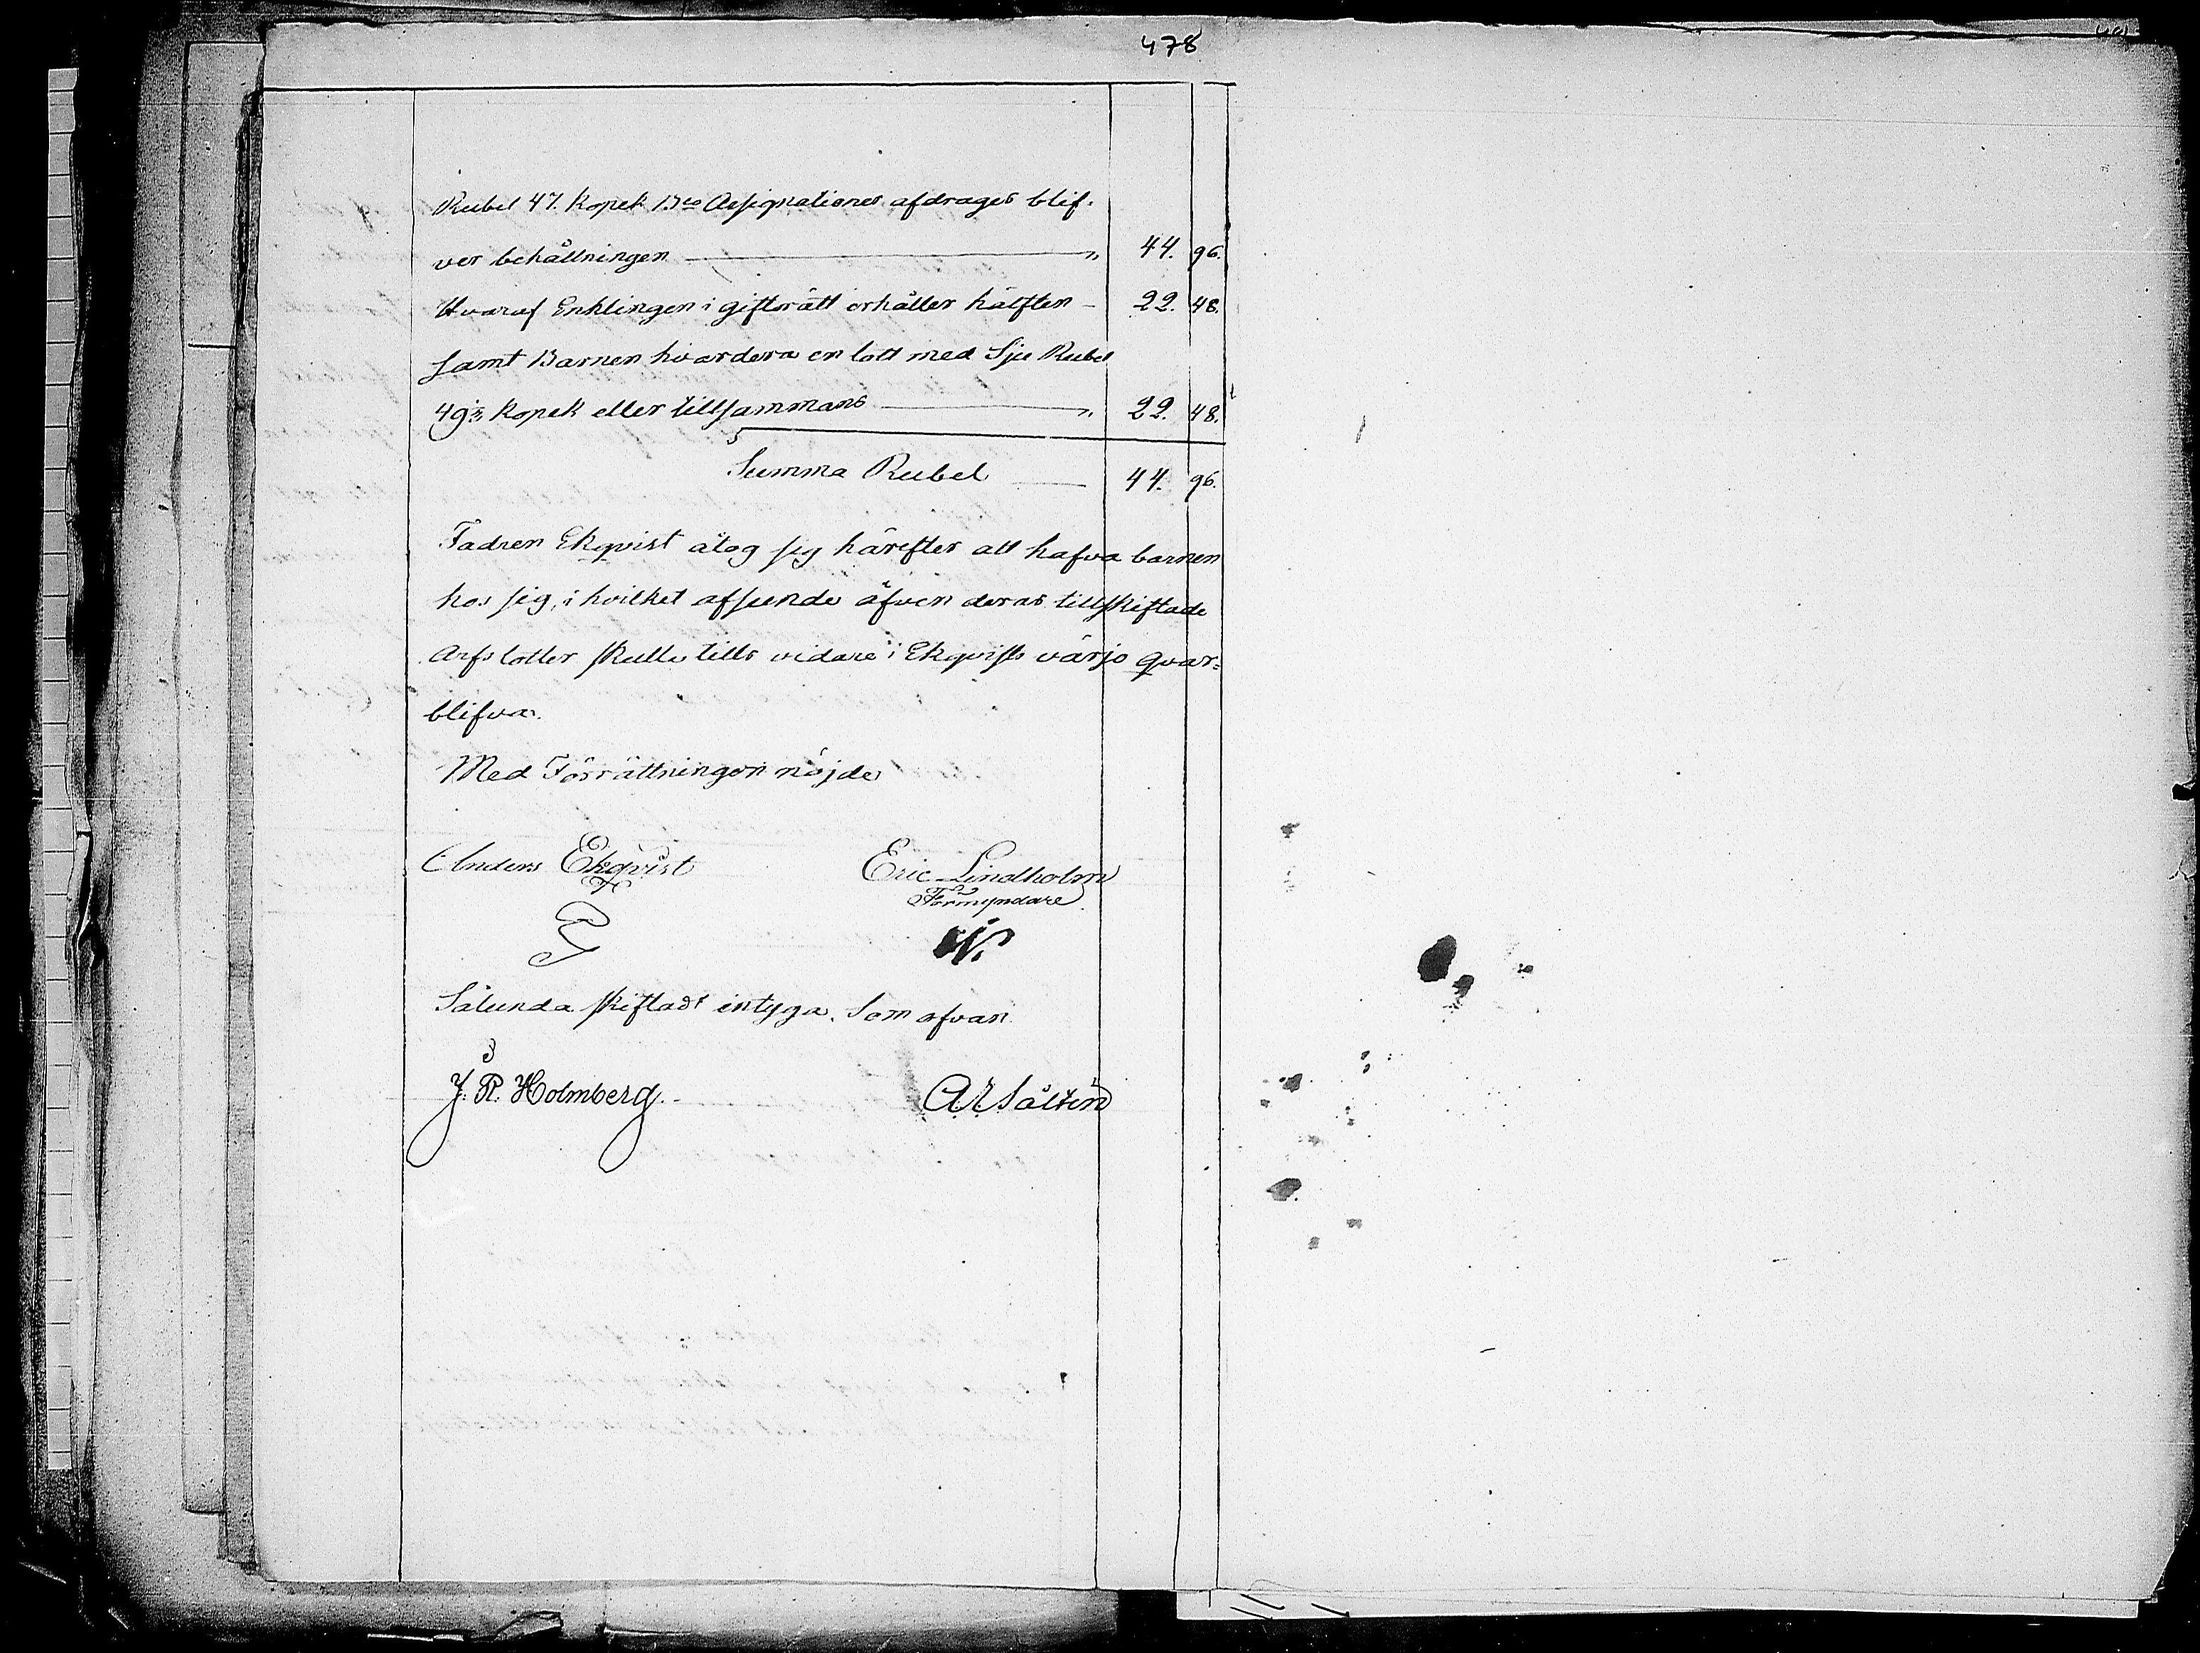 478
Rubel 47. kopek Bco Assignationer afdrages blif-
ver behållningen — " 44. 96.
Hvaraf Enklingen i giftorätt erhåller hälften — 22. 48.
samt Barnen hvardera en lott med Sju Rubel
49⅓ kopek eller tillsammans — " 22. 48.
Summa Rubel — 44. 96.
Fadren Ekqvist åtog sig härefter att hafva barnen
hos sig, i hvilket afseende äfven deras tillskiftade
Arfslotter skulle tills vidare i Ekqvists värjo qvar=
blifva.
Med Förrättningen nöjde
Anders Ekqvist Eric Lindholm
Förmyndare
Sålunda skiftadt intyga. Som ofvan
J. R. Holmberg.